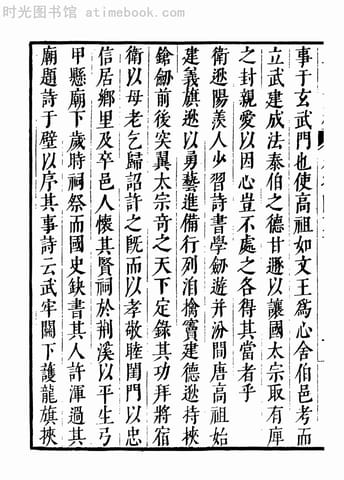 时光图书馆 - atimebook.com
事于玄武門也使高祖如文王爲心舍伯邑考而
立武建成法泰伯之德甘遜以讓國太宗取有庫
之封親愛以因心豈不處之各得其當者乎
衛遜陽羨人少習詩書學劔遊并汾間唐高祖始
建義旗遜以勇藝進備行列洎擒竇建德遜持挾
鎗劔前後突異太宗奇之天下定錄其功拜將宿
衛以母老乞歸詔許之旣而以孝敬睦閨門以忠
信居鄉里及卒邑人懷其賢祠於荆溪以平生弓
甲懸廟下歲時祠祭而國史缺書其人許渾過其
廟題詩于壁以序其事詩云武牢關下護龍旗挾